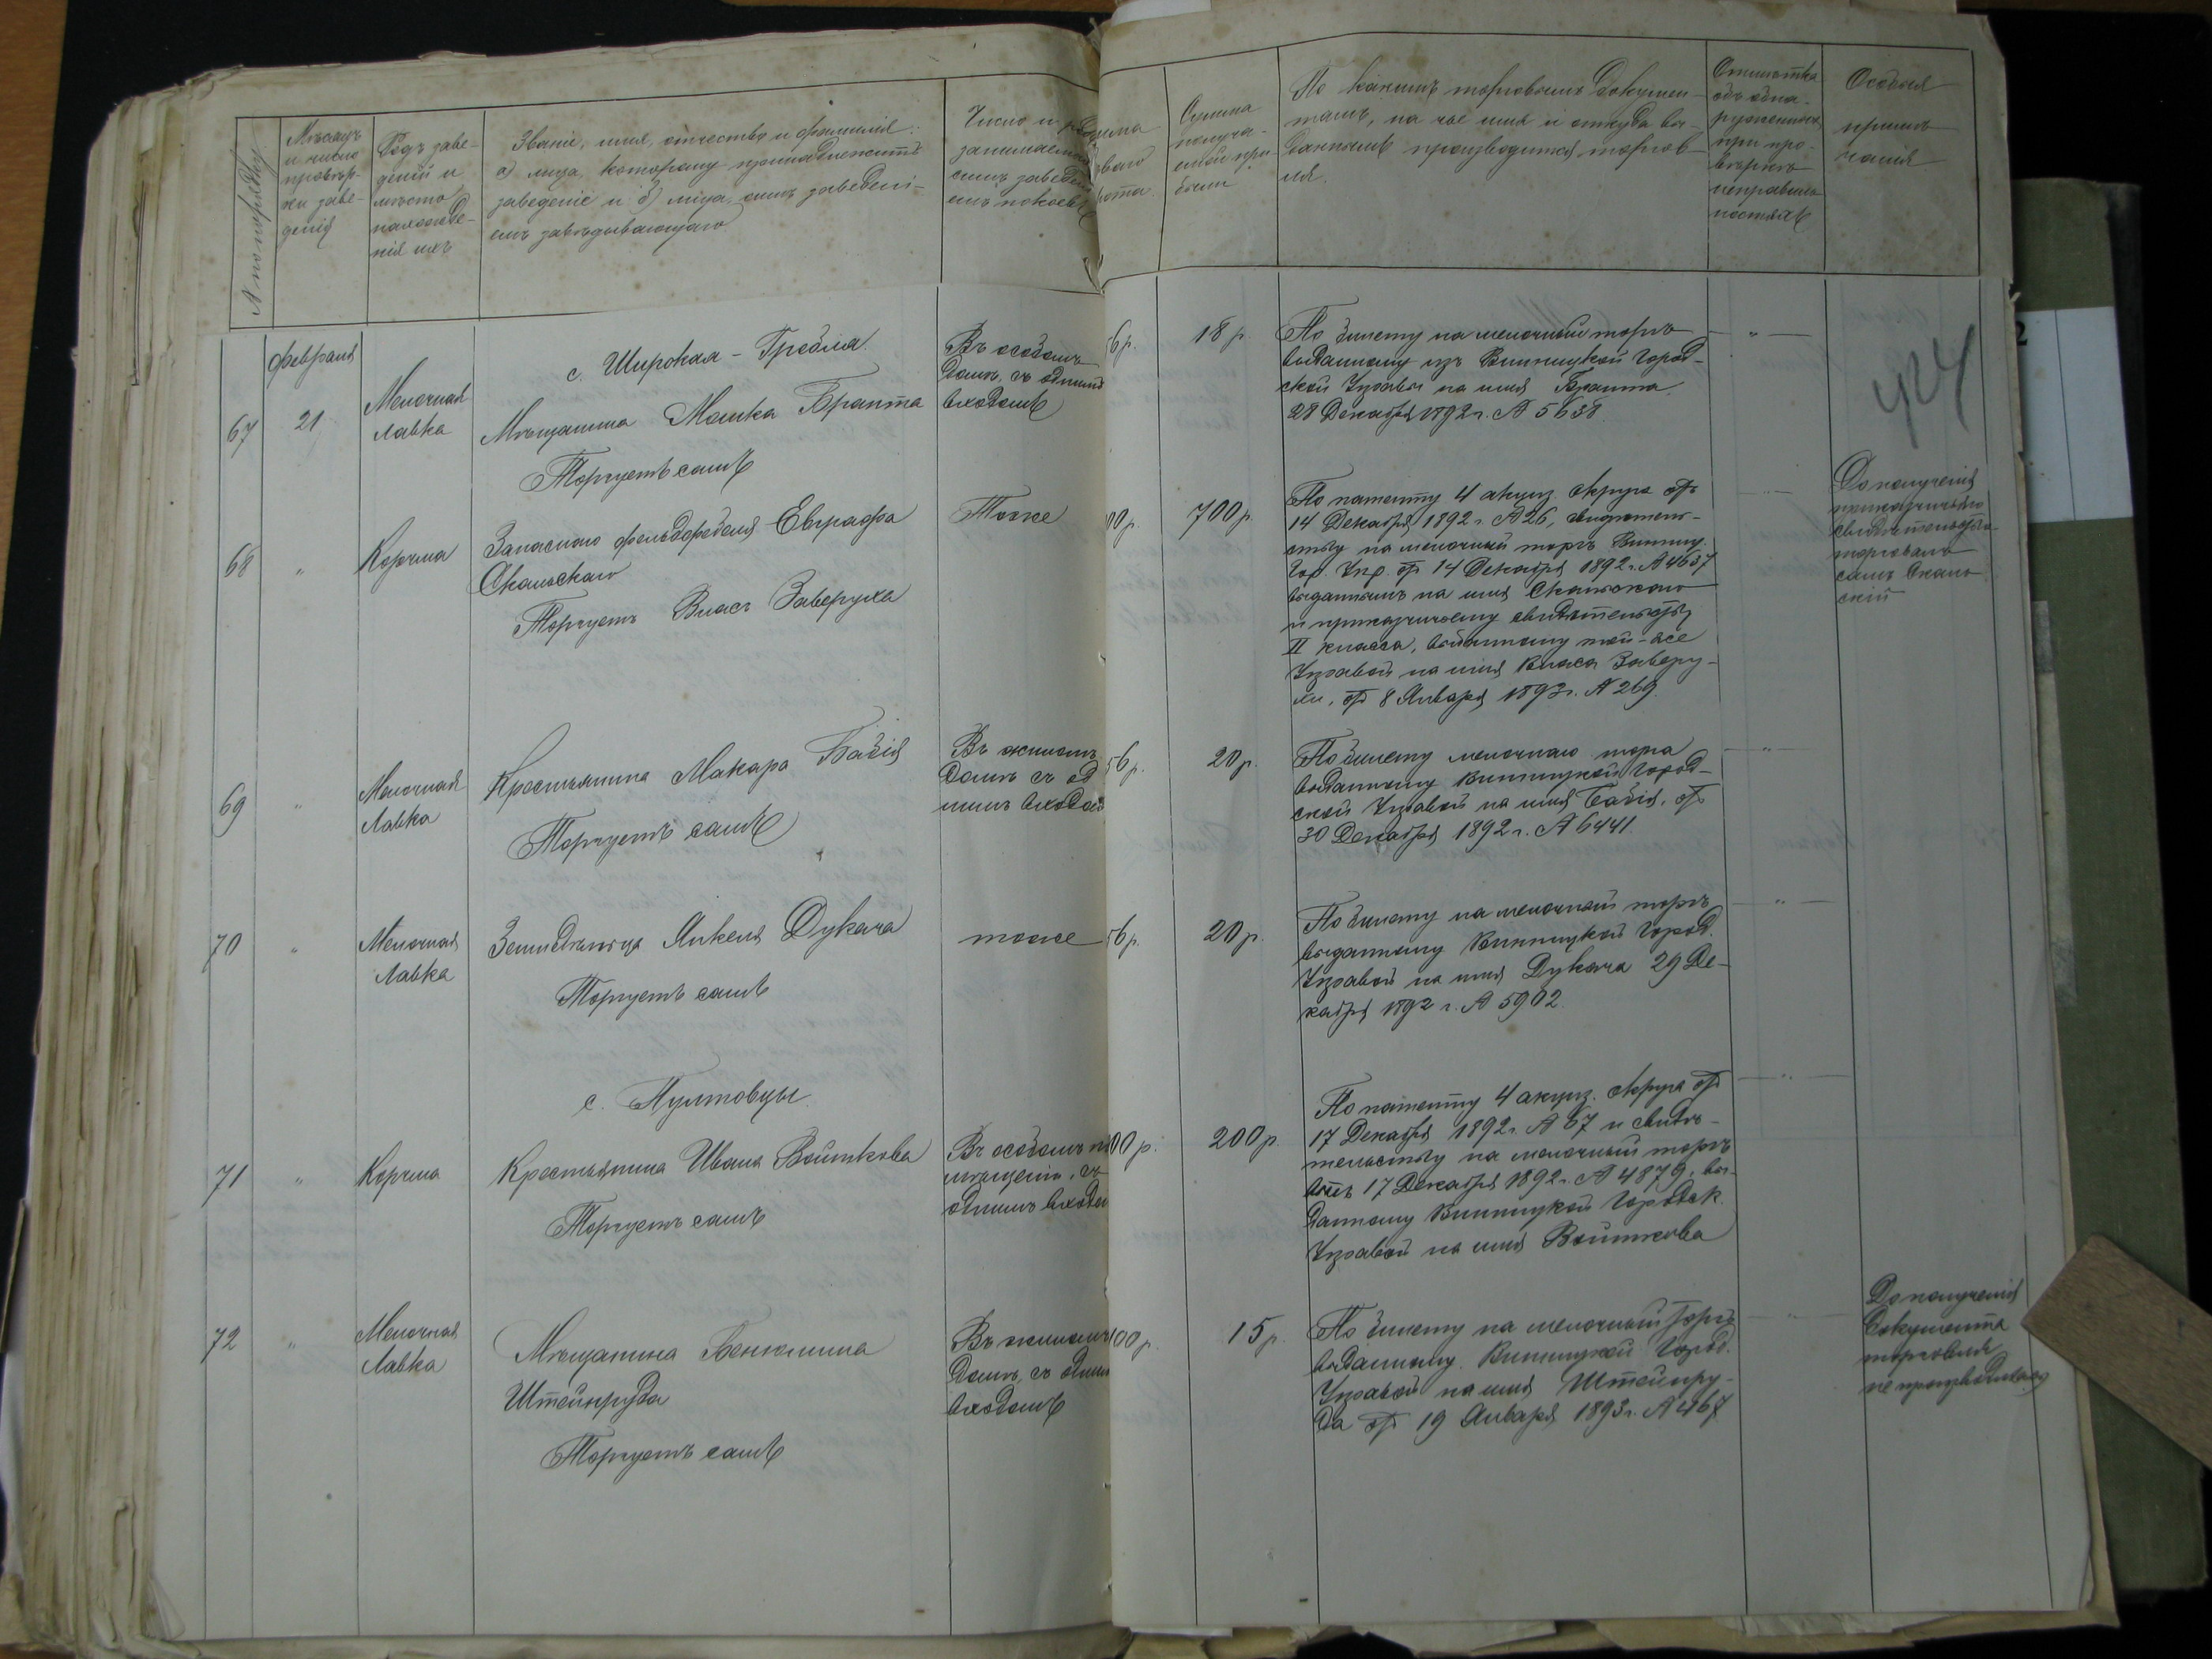 № по порядку
Мѣсяцъ
и число
провѣр-
ки заве-
денія
Родъ заве-
деній и
мѣсто
нахожде-
нія ихъ
Званіе, имя, отчество и фамилія:
а) лица, которому принадлежитъ
заведеніе и б) лица, симъ заведені-
емъ завѣдывающаго
Число и
занимаемыхъ
симъ заведені-
емъ покоевъ
Сумма
получа-
емой при-
были
По какимъ торговымъ докумен-
тамъ, на чье имя и откуда вы-
даннымъ производится торгов-
ля.
Отмѣтка
объ обна-
руженныхъ
при про-
вѣркѣ
неправиль-
ностяхъ
Особыя
примѣ-
чанія
февраля
с. Широкая-Гребля.
67
21
Мелочная
лавка
Мѣщанина Мошка Бранта
Торгуетъ самъ
Въ особомъ
домѣ, съ однимъ
входомъ
56 р.
18 р.
По билету на мелочный торгъ
выданному изъ Винницкой Город-
ской Управы на имя Бранта
28 Декабря 1892 г. № 5638.
424
68
"
Корчма
Запаснаго фельдфебеля Евграфа
Скальскаго
Торгуетъ Власъ Заверуха
Тоже
00 р.
700 р.
По патенту 4 акциз. округа отъ
14 Декабря 1892 г. № 26, свидѣтель-
ству на мелочный торгъ Винниц.
Гор. Упр. отъ 14 Декабря 1892 г. № 4637
выданнымъ на имя Скальскаго
и приказчичьему свидѣтельству
II класса, выданному той-же
Управой на имя Власа Заверу-
хи, отъ 8 Января 1893 г. № 269.
До полученія
приказчичьяго
свидѣтельства
торговалъ
самъ Скаль-
скій
69
"
Мелочная
лавка
Крестьянина Макара Бабія
Торгуетъ самъ
Въ жиломъ
домѣ съ од
нимъ входомъ
56 р.
20 р.
По билету мелочнаго торга
выданному Винницкой Город-
ской Управой на имя Бабія, отъ
30 Декабря 1892 г. № 6441.
70
"
Мелочная
лавка
Земледѣльца Янкеля Дукача
Торгуетъ самъ
тоже
56 р.
20 р.
По билету на мелочной торгъ
выданному Винницкой Город.
Управой на имя Дукача 29 Де-
кабря 1892 г. № 5902.
с. Пултовцы.
71
"
Корчма
Крестьянина Ивана Войткова
Торгуетъ самъ
Въ особомъ по
мѣщеніи, съ
однимъ входом
00 р.
200 р.
По патенту 4 акциз. округа отъ
17 Декабря 1892 г. № 67 и свидѣ-
тельству на мелочный торгъ
17 Декабря 1892 г. № 4879, вы-
данному Винницкой Городск.
Управой на имя Войткова
72
"
Мелочная
лавка
Мѣщанина Бенюмина
Штейнруда
Торгуетъ самъ
Въ жиломъ
домѣ, съ одним
входомъ
100 р.
15 р.
По билету на мелочный торгъ
выданному Винницкой Город.
Управой на имя Штейнру-
да отъ 19 Января 1893 г. № 467
До полученія
документа
торговля
не производилась